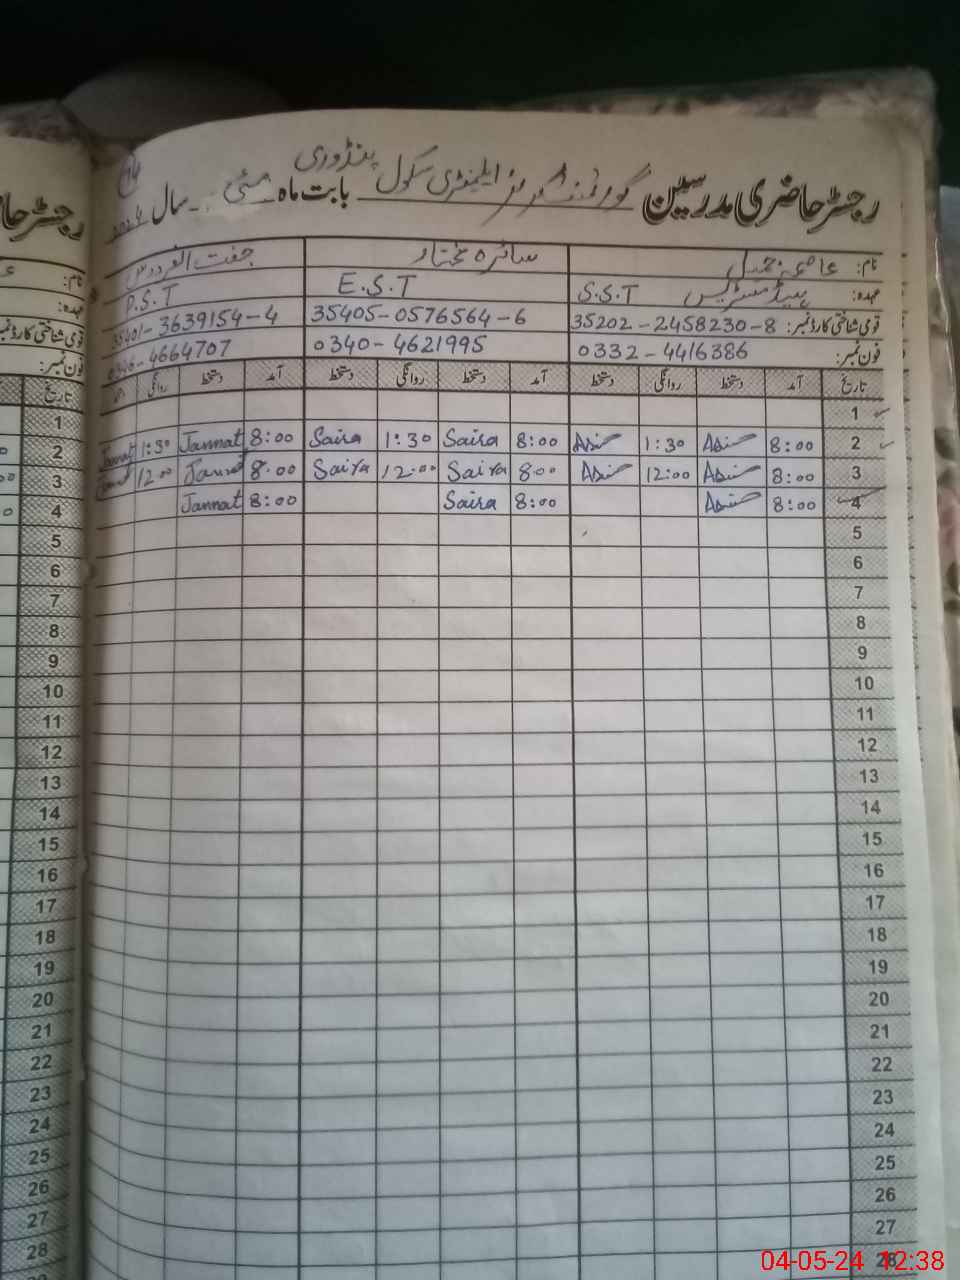 رجسٹر حاضری مدرسین گورنمنٹ گرلز ایلیمنٹری سکول پنڈوری بابت ماہ مئی سال 2024
نام: عاصمہ جمیل سائرہ مختار جنت الفردوس
عہدہ: ہیڈ مسٹریس S.S.T E.S.T P.S.T
قومی شناختی کارڈ نمبر: 35202-2458230-8 35405-0576564-6 35401-3639154-4
فون نمبر: 0332-4416386 0340-4621995 0346-4664707
تاریخ آمد دستخط روانگی دستخط آمد دستخط روانگی دستخط آمد دستخط روانگی
1
2 8:00 1:30 8:00 Saira 1:30 Saira 8:00 Jannat 1:30 Jannat
3 8:00 12:00 8:00 Saira 12:00 Saira 8:00 Jannat 12:00 Jannat
4 8:00 8:00 Saira 8:00 Jannat
5
6
7
8
9
10
11
12
13
14
15
16
17
18
19
20
21
22
23
24
25
26
27
28
رجسٹر حا
نام:
عہدہ:
قومی شناختی کارڈ نمبر
فون نمبر:
تاریخ
1
2
3
4
5
6
7
8
9
10
11
12
13
14
15
16
17
18
19
20
21
22
23
24
25
26
27
28
04-05-24 12:38